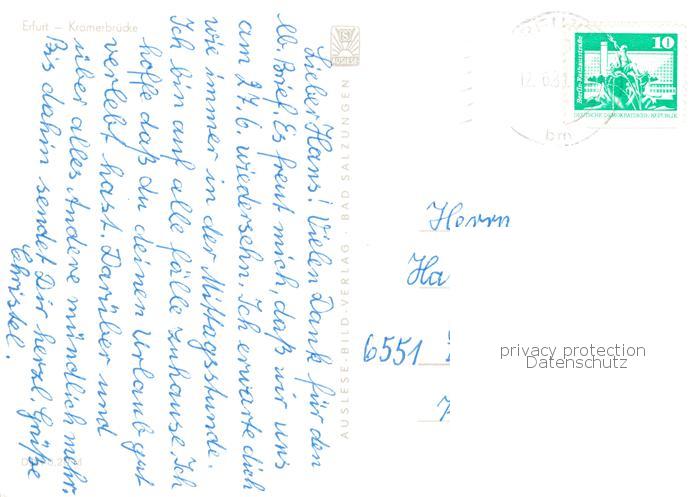 Erfurt – Krämerbrücke
Lieber Hans! Vielen Dank für den
lb. Brief. Es freut mich, daß wir uns
am 27.6. wiedersehn. Ich erwarte dich
wie immer in der Mittagsstunde.
Ich bin auf alle fälle zuhause. Ich
hoffe daß du deinen Urlaub gut
verlebt hast. Darüber und
über alles Andere mündlich mehr.
Bis dahin sendet Dir herzl. Grüße
Christel.
AUSLESE-BILD-VERLAG · BAD SALZUNGEN
10
Berlin-Rathausstraße
DEUTSCHE DEMOKRATISCHE REPUBLIK
bm
Herrn
Ha
6551
privacy protection
Datenschutz